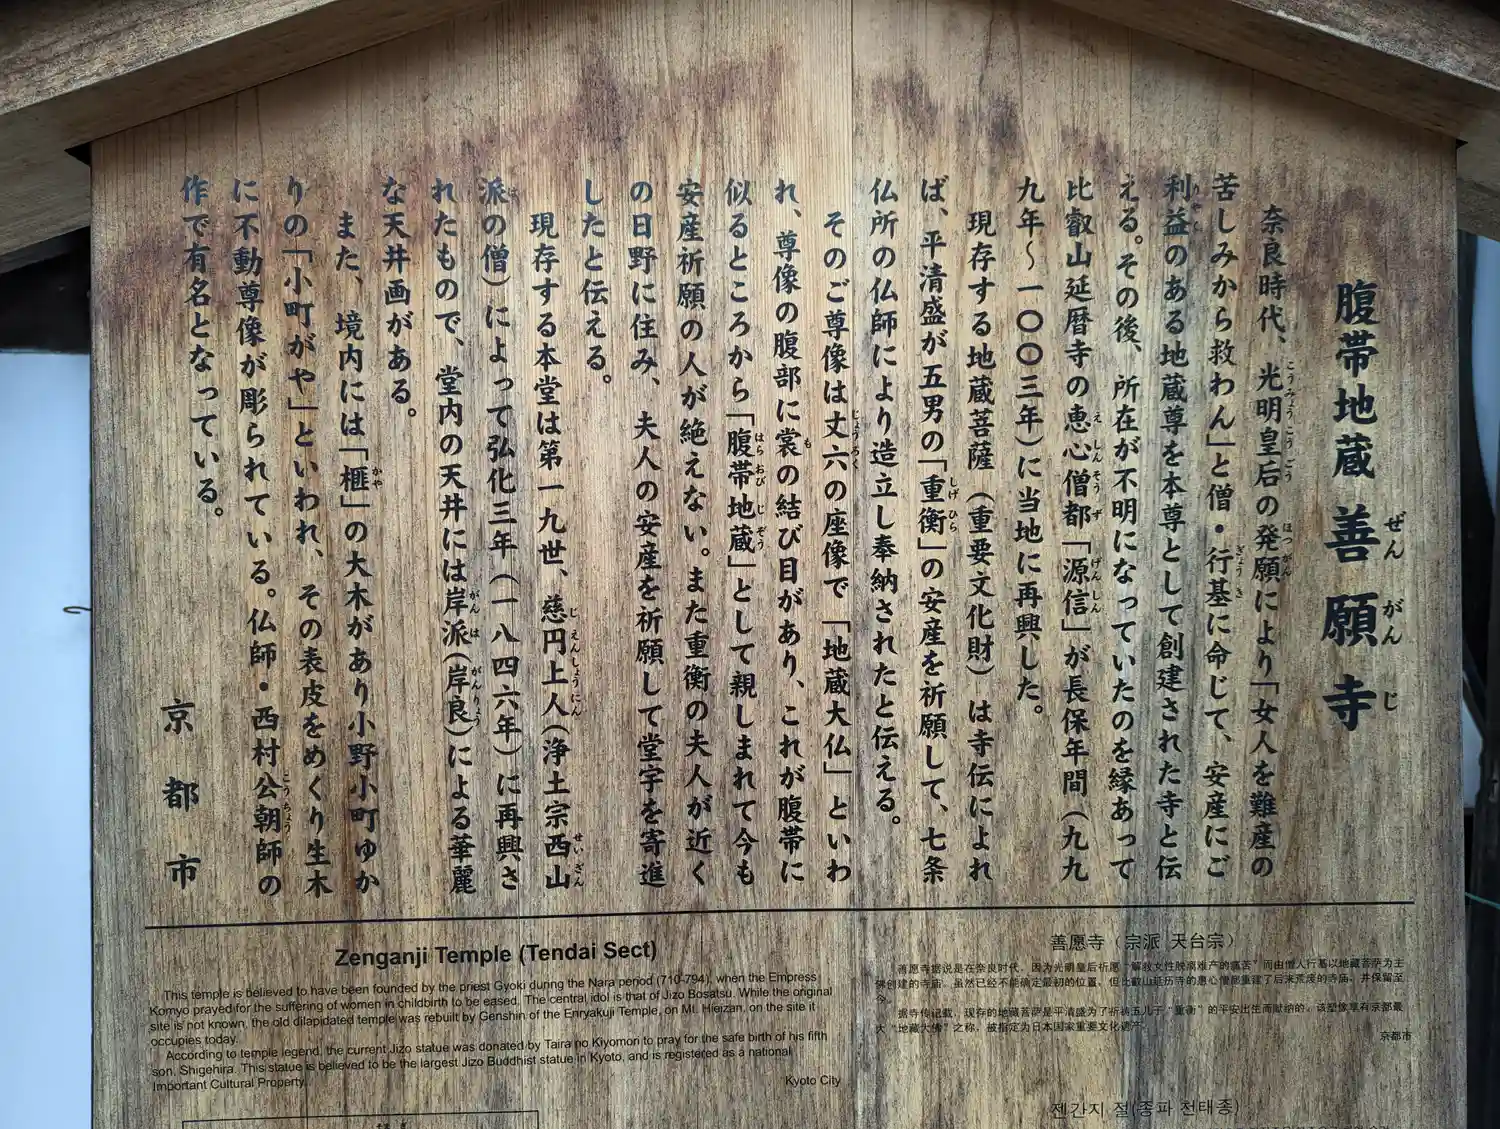 腹帯地蔵 善願寺
ぜん がん じ
奈良時代、光明皇后の発願により「女人を難産の
こうみょうこうごう ほつがん
苦しみから救わん」と僧・行基に命じて、安産にご
ぎょうき
利益のある地蔵尊を本尊として創建された寺と伝
りやく
える。その後、所在が不明になっていたのを縁あって
比叡山延暦寺の恵心僧都「源信」が長保年間(九九
えしんそうず げんしん
九年~一〇〇三年)に当地に再興した。
現存する地蔵菩薩(重要文化財)は寺伝によれ
ば、平清盛が五男の「重衡」の安産を祈願して、七条
しげひら
仏所の仏師により造立し奉納されたと伝える。
そのご尊像は丈六の座像で「地蔵大仏」といわ
じょうろく
れ、尊像の腹部に裳の結び目があり、これが腹帯に
も
似るところから「腹帯地蔵」として親しまれて今も
はらおびじぞう
安産祈願の人が絶えない。また重衡の夫人が近く
の日野に住み、夫人の安産を祈願して堂宇を寄進
したと伝える。
現存する本堂は第一九世、慈円上人(浄土宗西山
じえんしょうにん せいざん
派の僧)によって弘化三年(一八四六年)に再興さ
は
れたもので、堂内の天井には岸派(岸良)による華麗
がんは がんりょう
な天井画がある。
また、境内には「榧」の大木があり小野小町ゆか
かや
りの「小町がや」といわれ、その表皮をめくり生木
に不動尊像が彫られている。仏師・西村公朝師の
こうちょう
作で有名となっている。
京都市
Zenganji Temple (Tendai Sect)
This temple is believed to have been founded by the priest Gyoki during the Nara period (710-794), when the Empress
Komyo prayed for the suffering of women in childbirth to be eased. The central idol is that of Jizo Bosatsu. While the original
site is not known, the old dilapidated temple was rebuilt by Genshin of the Enryakuji Temple, on Mt. Hieizan, on the site it
occupies today.
According to temple legend, the current Jizo statue was donated by Taira no Kiyomori to pray for the safe birth of his fifth
son, Shigehira. This statue is believed to be the largest Jizo Buddhist statue in Kyoto, and is registered as a national
Important Cultural Property.
Kyoto City
善愿寺（宗派 天台宗）
善愿寺据说是在奈良时代，因为光明皇后祈愿“解救女性脱离难产的痛苦”而由僧人行基以地藏菩萨为主
佛创建的寺庙。虽然已经不能确定最初的位置，但比叡山延历寺的惠心僧都重建了后来荒废的寺庙，并保留至
今。
据寺传记载，现存的地藏菩萨是平清盛为了祈祷五儿子“重衡”的平安出生而献纳的。该塑像享有京都最
大“地藏大佛”之称，被指定为日本国家重要文化遗产。
京都市
젠간지 절(종파 천태종)